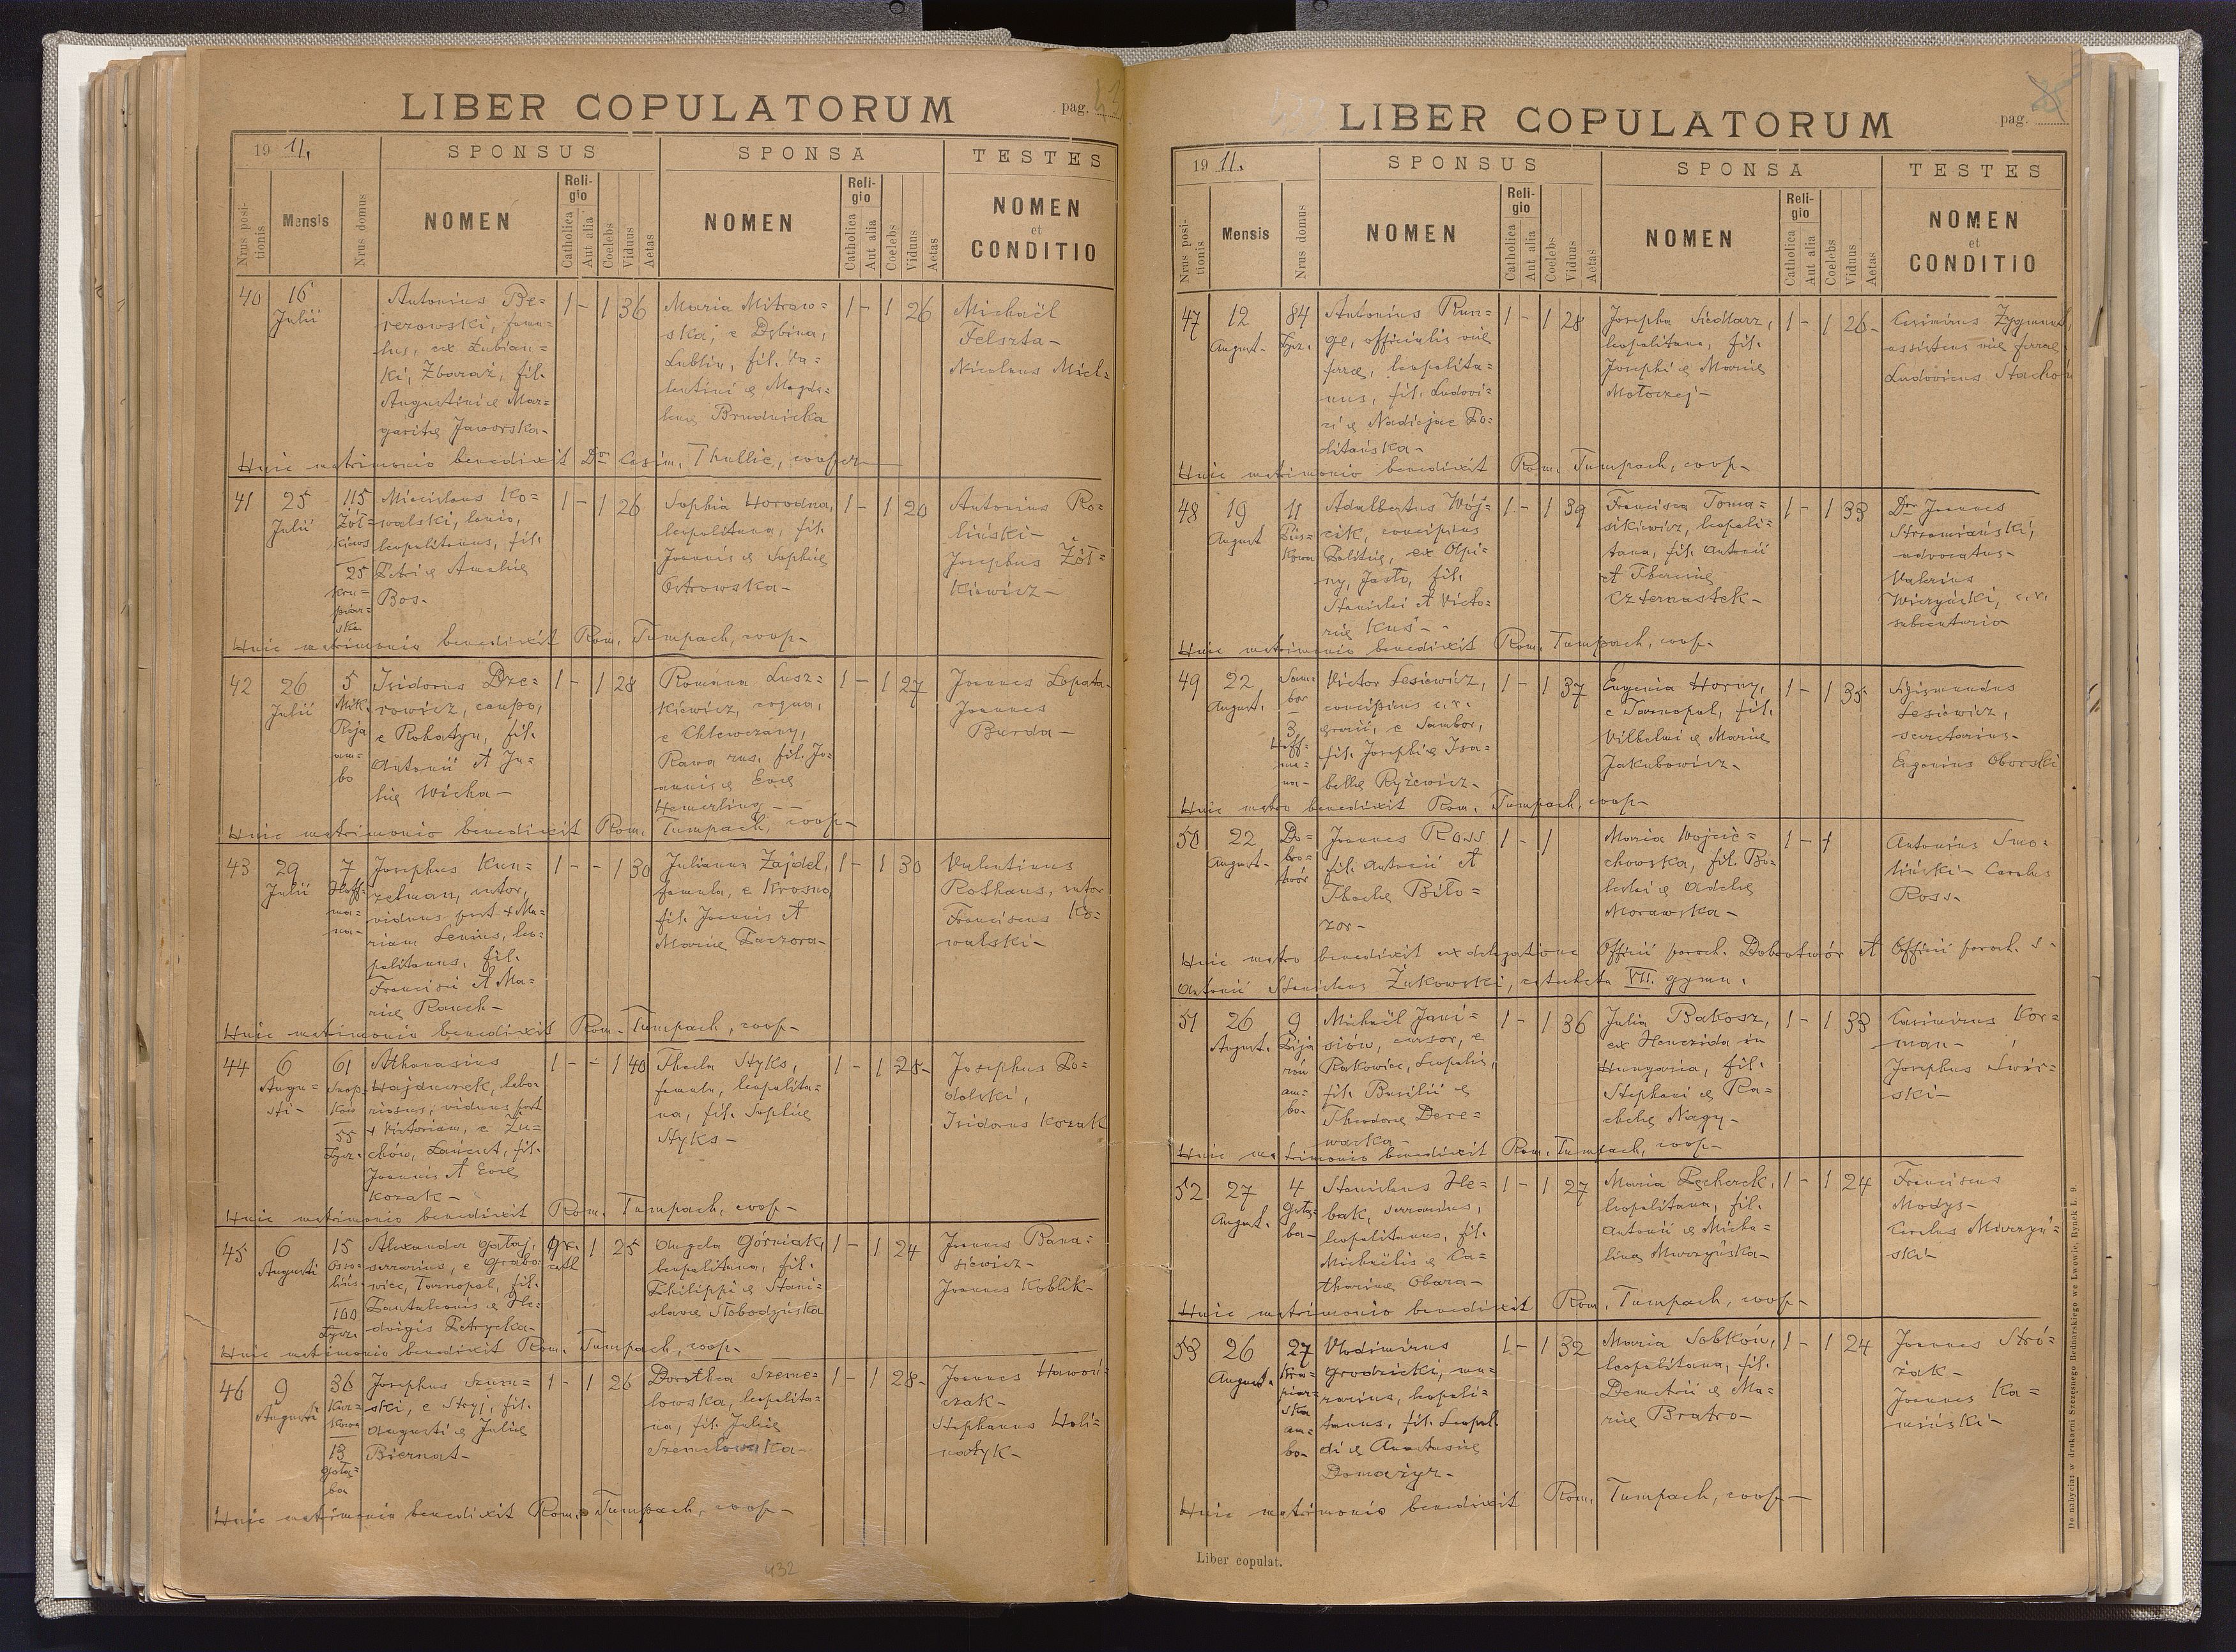 LIBER COPULATORUM
pag.
19 11.
SPONSUS
SPONSA
TESTES
Nrus posi-
tionis
Mensis
Nrus domus
NOMEN
Reli-
gio
Catholica
Aut alia
Coelebs
Viduus
Aetas
NOMEN
Reli-
gio
Catholica
Aut alia
Coelebs
Viduus
Aetas
NOMEN
et
CONDITIO
40
16
Julii
Antonius Be=
rezowski, famu=
lus, ex Łubian=
ki, Zbaraż, fil.
Augustini &
Mar=
garitę Jaworska-
1 - 1 36
Maria Mitrow=
ska, e Dębina,
Lublin, fil. Va=
lentini & Magda=
lenę Brudnicka
1 - 1 26
Michaël
Felszta-
Nicolaus Micl=
Huic matrimonio benedixit Dr Casim. Thullie, cooper
41
25
Julii
115
Żół=
kiews
25
Kru=
piar=
ska
Miecislaus Ko=
walski, lanio,
leopolitanus, fil.
Petri & Amalię
Bos.
1 - 1 26
Sophia Horodna,
leopolitana, fil.
Joannis & Sophię
Ostrowska-
1 - 1 20
Antonius Ro=
liński-
Josephus Żół=
kiewicz-
Huic matrimonio benedixit Rom. Tumpach, coop-
42
26
Julii
5
Mik.
Reja
am=
bo
Isidorus Dze=
rowicz, caupo,
e Rohatyn, fil.
Antonii et Ju=
lię Wicha-
1 - 1 28
Romana Lusz=
kiewicz, coqua,
e Chlewczany,
Rawa rus. fil. Jo=
annis & Evę
Hemerling--
1 - 1 27
Joannes Łopata-
Joannes
Burda-
Huic matrimonio benedixit Rom. Tumpach, coop-
43
29
Julii
7
Hoff=
ma=
na-
Josephus Kun=
zelman, sutor,
viduus post + Ma=
riam Lenius, leo=
politanus, fil.
Francisci et Ma=
rię Rauch-
1 - - 1 30
Julianna Zajdel,
famula, e Krosno,
fil. Joannis et
Marię Paczora-
1 - 1 30
Valentinus
Rothaus, sutor
Franciscus Ko=
walski-
Huic matrimonio benedixit Rom. Tumpach, coop-
44
6
Augu=
sti-
61
Snop
ków
55
Łycz.
Athanasius
Hajduczek, labo=
riosus, viduus post
+ Victoriam, e Żu=
chów, Łańcut, fil.
Joannis et Evę
Kozak-
1 - - 1 40
Thecla Styks,
famula, leopolita=
na, fil. Sophię
Styks-
1 - 1 28-
Josephus Po=
dolski,
Isidorus Kozak
Huic matrimonio benedixit Rom. Tumpach, coop-
45
6
Augusti
15
Osso=
lińs=
100
Łycz.
Alexander Gałaj,
serrarius, e Grabo=
wiec, Tarnopol, fil.
Pantaleonis & He=
dvigis Petrycka-
gr.
catl
1 25
Angela Górniak,
leopolitana, fil.
Philippi & Stani=
slavę Słobodzińska
1 - 1 24
Joannes Bana=
siewicz-
Joannes Koblik-
Huic matrimonio benedixit Rom. Tumpach, coop.
46
9
Augusti
36
Kur=
kowa
13
Gołę=
ba
Josephus Szum=
ski, e Stryj, fil.
Augusti & Julię
Biernat-
1 - 1 26
Dorothea Szeme=
lowska, leopolita=
na, fil. Julię
Szemelowska-
1 - 1 28-
Joannes Hawoń=
czak-
Stephanus Holi=
natyk-
Huic matrimonio benedixit Rom. Tumpach, coop-
432
LIBER COPULATORUM
pag.
19 11.
SPONSUS
SPONSA
TESTES
Nrus posi-
tionis
Mensis
Nrus domus
NOMEN
Reli-
gio
Catholica
Aut alia
Coelebs
Viduus
Aetas
NOMEN
Reli-
gio
Catholica
Aut alia
Coelebs
Viduus
Aetas
NOMEN
et
CONDITIO
47
12
August-
84
Łycz.
Antonius Run=
ge, officialis vię
ferrę, leopolita=
nus, fil. Ludovi=
ci & Nadiejae Po=
litańska-
1 - 1 28
Josepha Siedlarz,
leopolitana, fil.
Josephi & Marię
Mołoczej-
1 - 1 26-
Casimirus Zygmunt
assistens vię ferrae
Ludovicus Stachoń
Huic matrimonio benedixit Rom. Tumpach, coop-
48
19
August
11
Pias=
kowa
Adalbertus Wój=
cik, concipiens
Politię, ex Olpi=
ny, Jasło, fil.
Stanislai et Victo=
rię Kuś--
1 - 1 39
Francisca Toma=
sikiewicz, leopoli=
tana, fil. Antonii
et Theresię
Czternastek-
1 - 1 33
Dr Joannes
Strzemiański,
advocatus-
Valerius
Wiczyński, c.r.
Huic matrimonio benedixit Rom. Tumpach, coop.
49
22
August.
Sam=
bor
3
Hoff=
ma=
na-
Victor Lesiewicz,
concipiens c.r.
erarii, e Sambor,
fil. Josephi & Isa=
bellę Ryżewicz-
1 - 1 37
Eugenia Horny,
e Tarnopol, fil.
Vilhelmi & Marię
Jakubowicz-
1 - 1 35
Sigismundus
Lesiewicz,
secretarius-
Eugenius Oborski
Huic matro benedixit Rom. Tumpach, coop-
50
22
August-
Do=
bro=
twór
Joannes Ross
fil. Antonii et
Theclę Biło=
zor-
1 - 1
Maria Wojcie=
chowska, fil. Bo=
leslai & Adelę
Morawska-
1 - 1
Antonius Smo=
liński- Carolus
Ross-
Huic matro benedixit ex delegatione Officii paroch. Dobrotwór et Officii paroch. S.
Antonii Stanislaus Żukowski, catecheta VII. gymn.
51
26
August.
9
Pija
rów
am=
bo-
Michaël Jani=
siów, cursor, e
Rakowiec, Leopolis,
fil. Basilii &
Theodorę Dere=
wacka-
1 - 1 36
Julia Bakosz,
ex Henczida in
Hungaria, fil.
Stephani & Ra=
chelę Nagy-
1 - 1 33
Casimirus Kor=
man-
Josephus Świr=
ski-
Huic matrimonio benedixit Rom. Tumpach, coop-
52
27
August.
4
Gołę=
ba-
Stanislaus He=
bak, serrarius,
leopolitanus, fil.
Michaëlis & Ca=
tharinę Obara-
1 - 1 27
Maria Pęcherek,
leopolitana, fil.
Antonii & Micha=
linę Murzyńska-
1 - 1 24
Franciscus
Modys-
Carolus Murzyń=
ski-
Huic matrimonio benedixit Rom. Tumpach, coop-
53
26
August.
27
Kru=
piar=
ska
am=
bo-
Vlodimirus
Grodzicki, mu=
rarius, leopoli=
tanus, fil. Leopol
di & Anastasię
Domażyr-
1 - 1 32
Maria Sobków,
leopolitana, fil.
Demetrii & Ma=
rię Bratro-
1 - 1 24
Joannes Stró=
żak-
Joannes Ka=
miński-
Huic matrimonio benedixit Rom. Tumpach, coop-
Liber copulat.
Do nabycia: w drukarni Szczęsnego Bednarskiego we Lwowie, Rynek l. 9.